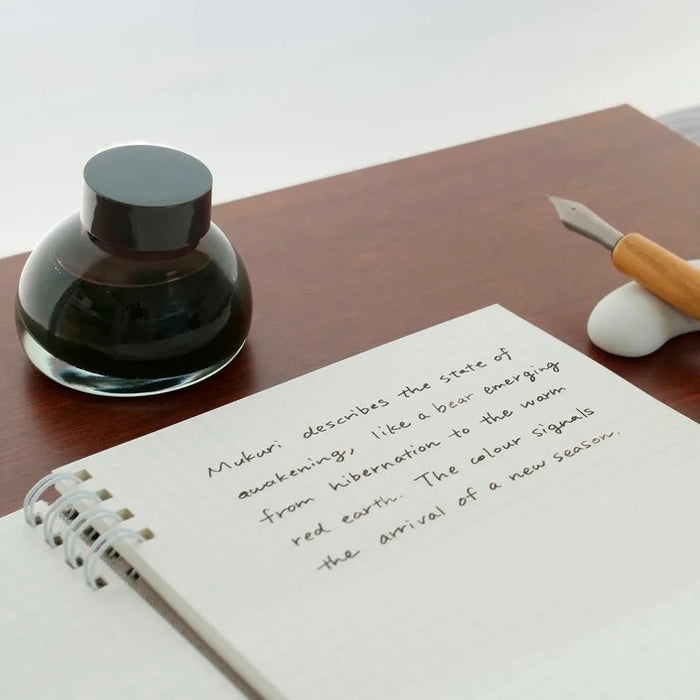 Mukuri describes the state of
awakening, like a bear emerging
from hibernation to the warm
red earth. The colour signals
the arrival of a new season.